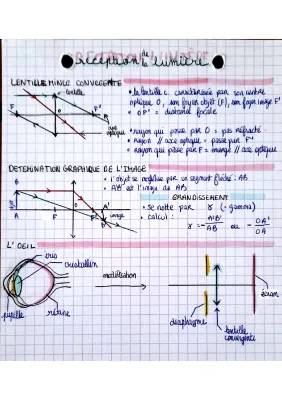 réception de la lumière
LENTILLE MINCE CONVERGENTE
lentille
F
O
F'
axe optique
• la lentille c. considérée par son centre
optique O, son foyer objet (F), son foyer image F'
• OF' = distance focale
• rayon qui passe par O = pas réfracté
• rayon // axe optique = passe par F'
• rayon qui passe par F = émerge // axe optique
DETEMINATION GRAPHIQUE DE L'IMAGE
• l'objet se modélise par un segment fléché : AB
• A'B' est l'image de AB
objet
B
A
F
O
F'
A'
B'
image
GRANDISSEMENT
• se note par γ (= gamma)
• calcul :
γ = - A'B' / AB ou - OA' / OA
L'OEIL
iris
cristallin
pupille
rétine
modélisation
diaphragme
lentille
convergente
écran